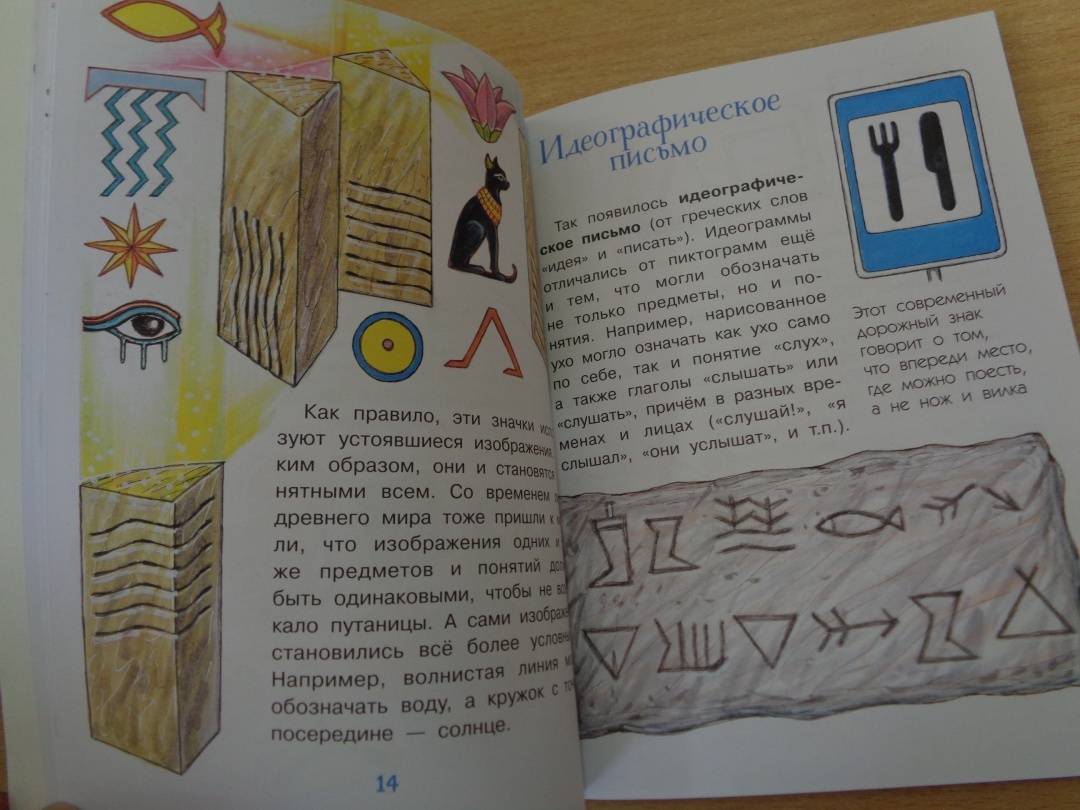 Как правило, эти значки
зуют устоявшиеся изображения.
ким образом, они и становятся
нятными всем. Со временем
древнего мира тоже пришли к
ли, что изображения одних и
же предметов и понятий
быть одинаковыми, чтобы не
кало путаницы. А сами
становились всё более
Например, волнистая линия
обозначать воду, а кружок с
посередине — солнце.
14
Идеографическое
письмо
Так появилось идеографиче-
ское письмо (от греческих слов
«идея» и «писать»). Идеограммы
отличались от пиктограмм ещё
и тем, что могли обозначать
не только предметы, но и по-
нятия. Например, нарисованное
ухо могло означать как ухо само
по себе, так и понятие «слух»,
а также глаголы «слышать» или
«слушать», причём в разных вре-
менах и лицах («слушай!», «я
слышал», «они услышат», и т.п.).
Этот современный
дорожный знак
говорит о том,
что впереди место,
где можно поесть,
а не нож и вилка